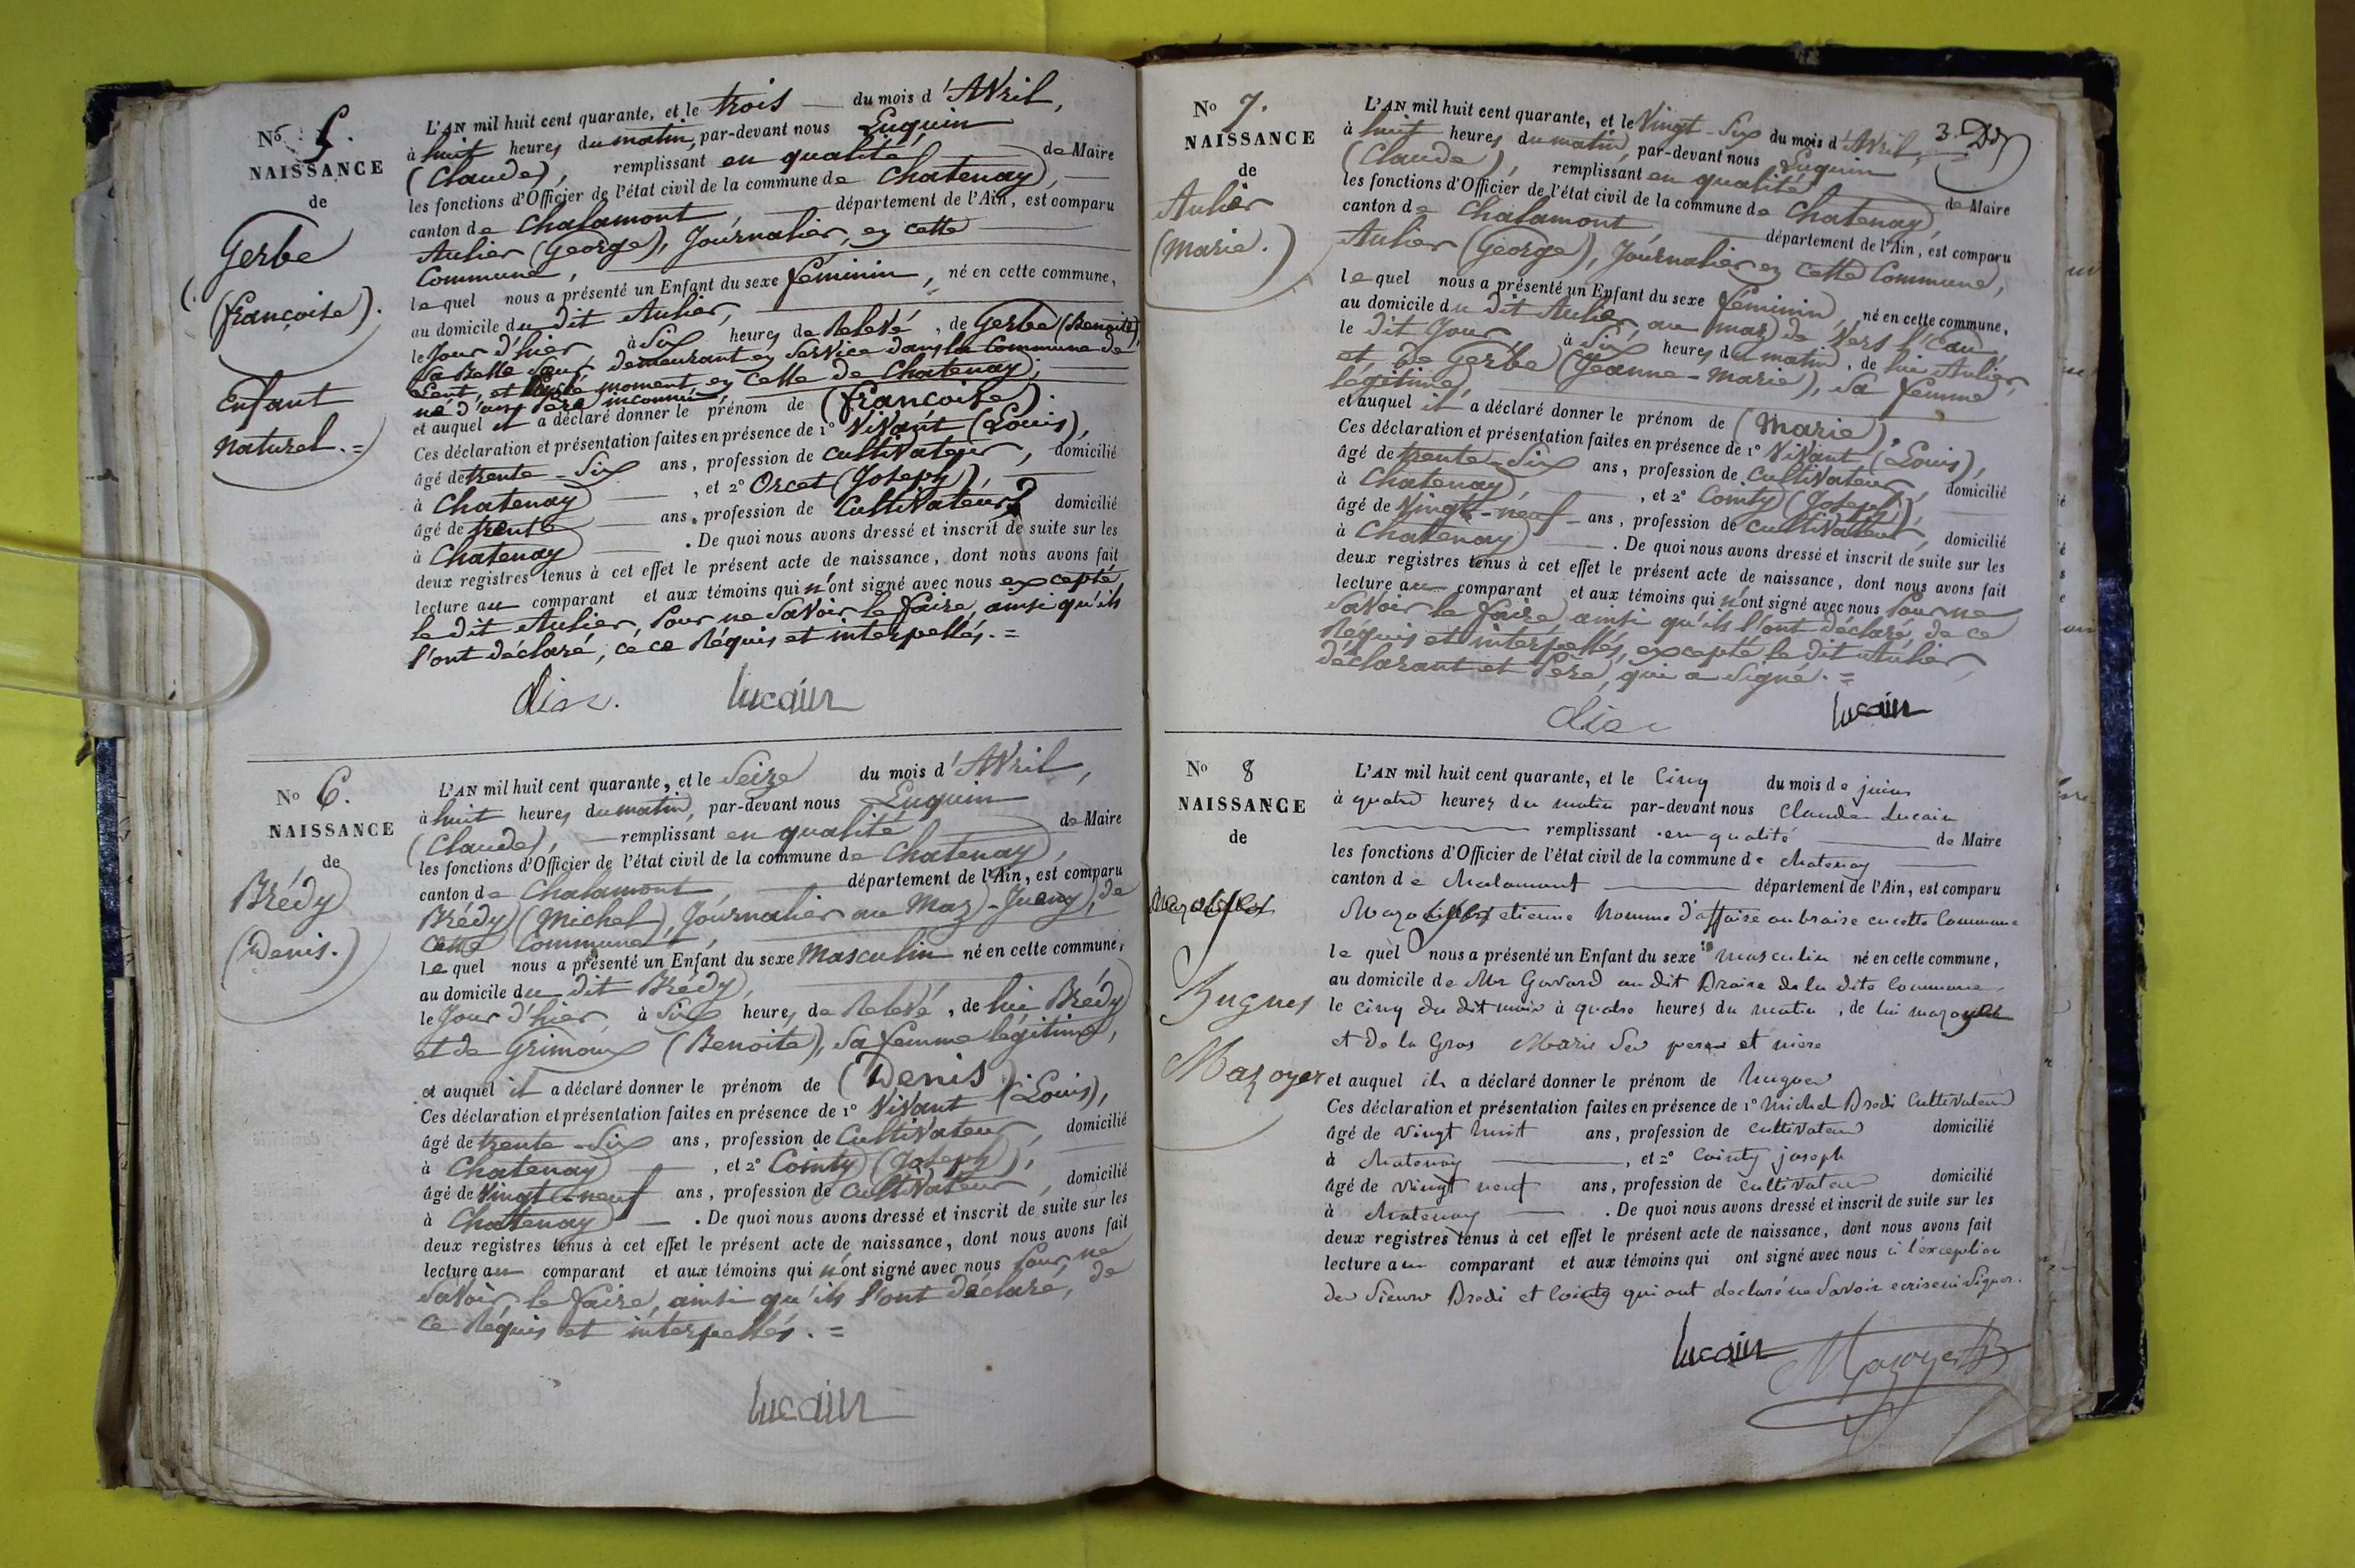 No 5.
NAISSANCE
de
Gerbe
(françoise).
Enfant
naturel. =
L'AN mil huit cent quarante, et le trois du mois d'Avril,
à huit heures du matin, par-devant nous Luquin
(Claude), remplissant en qualité de Maire
les fonctions d'Officier de l'état civil de la commune de Chatenay,
canton de Chalamont, département de l'Ain, est comparu
Aulier (George), Journalier, en cette
Commune,
lequel nous a présenté un Enfant du sexe féminin, né en cette commune,
au domicile du dit Aulier,
le Jour d'hier, à Six heures de Relevé, de Gerbe (Benoite),
Sa Belle Sœur, demeurant en Service dans la Commune de
Lent, et moment, en celle de Chatenay,
né d'un Père inconnu,
et auquel il a déclaré donner le prénom de (françoise).
Ces déclaration et présentation faites en présence de 1° ViVant (Louis),
âgé de trente-Six ans, profession de CultiVateur, domicilié
à Chatenay, et 2° Orcet (Joseph),
âgé de trente ans, profession de CultiVateur, domicilié
à Chatenay. De quoi nous avons dressé et inscrit de suite sur les
deux registres tenus à cet effet le présent acte de naissance, dont nous avons fait
lecture au comparant et aux témoins qui n'ont signé avec nous excepté
le dit Aulier, Pour ne SaVoir le faire, ainsi qu'ils
l'ont déclaré, ce ce Réquis et interpellés. =
lucain
No 6.
NAISSANCE
de
Brédy
(Denis.)
L'AN mil huit cent quarante, et le Seize du mois d'AVril,
à huit heures du matin, par-devant nous Luquin
(Claude), remplissant en qualité de Maire
les fonctions d'Officier de l'état civil de la commune de Chatenay,
canton de Chalamont, département de l'Ain, est comparu
Brédy (Michel), Journalier au Maz-Jueny, de
cette Commune,
lequel nous a présenté un Enfant du sexe Masculin né en cette commune,
au domicile du dit Brédy,
le Jour d'hier, à Six heures de Relevé, de lui Brédy
et de Grimoux (Benoite), Sa femme légitime,
et auquel il a déclaré donner le prénom de (Denis).
Ces déclaration et présentation faites en présence de 1° ViVant (Louis),
âgé de trente-Six ans, profession de CultiVateur, domicilié
à Chatenay, et 2° Cointy (Joseph),
âgé de Vingt-neuf ans, profession de CultiVateur, domicilié
à Chatenay. De quoi nous avons dressé et inscrit de suite sur les
deux registres tenus à cet effet le présent acte de naissance, dont nous avons fait
lecture au comparant et aux témoins qui n'ont signé avec nous Pour ne
SaVoir le faire, ainsi qu'ils l'ont déclaré, de
ce Réquis et interpellés. =
lucain
No 7.
NAISSANCE
de
Aulier
(Marie.)
L'AN mil huit cent quarante, et le Vingt-Six du mois d'AVril,
à huit heures du matin, par-devant nous Luquin
(Claude), remplissant en qualité de Maire
les fonctions d'Officier de l'état civil de la commune de Chatenay,
canton de Chalamont, département de l'Ain, est comparu
Aulier (George), Journalier en cette Commune,
lequel nous a présenté un Enfant du sexe féminin, né en cette commune,
au domicile du dit Aulier, au maz de Vers l'Eau,
le dit Jour, à Six heures du matin, de lui Aulier
et de Gerbe (Jeanne-Marie), Sa femme
légitime,
et auquel il a déclaré donner le prénom de (Marie).
Ces déclaration et présentation faites en présence de 1° ViVant (Louis),
âgé de trente-Six ans, profession de CultiVateur, domicilié
à Chatenay, et 2° Cointy (Joseph),
âgé de Vingt-neuf ans, profession de CultiVateur, domicilié
à Chatenay. De quoi nous avons dressé et inscrit de suite sur les
deux registres tenus à cet effet le présent acte de naissance, dont nous avons fait
lecture au comparant et aux témoins qui n'ont signé avec nous Pour ne
SaVoir le faire, ainsi qu'ils l'ont déclaré, de ce
Réquis et interpellés, excepté le dit Aulier,
déclarant et Père, qui a Signé. =
lucain
No 8
NAISSANCE
de
hugues
Mazoyer
L'AN mil huit cent quarante, et le Cinq du mois de juin
à quatre heures du matin par-devant nous Claude Lucain
remplissant en qualité de Maire
les fonctions d'Officier de l'état civil de la commune de chatenay
canton de chalamont département de l'Ain, est comparu
etienne homme d'affaire au braire en cette Commune
lequel nous a présenté un Enfant du sexe masculin né en cette commune,
au domicile de Mr Gavard au dit Braire de la dite Commune
le cinq du dit mois à quatre heures du matin, de lui mazoyer
et de la Gros Marie Ses pere et mère
et auquel ils a déclaré donner le prénom de hugues
Ces déclaration et présentation faites en présence de 1° Michel Bredi Cultivateur
âgé de vingt huit ans, profession de cultivateur domicilié
à chatenay, et 2° Cointy joseph
âgé de vingt neuf ans, profession de cultivateur domicilié
à chatenay. De quoi nous avons dressé et inscrit de suite sur les
deux registres tenus à cet effet le présent acte de naissance, dont nous avons fait
lecture au comparant et aux témoins qui ont signé avec nous à l'exception
des Sieurs Bredi et Cointy qui ont declaré ne Savoir ecrire ni Signer.
lucain Mazoyer